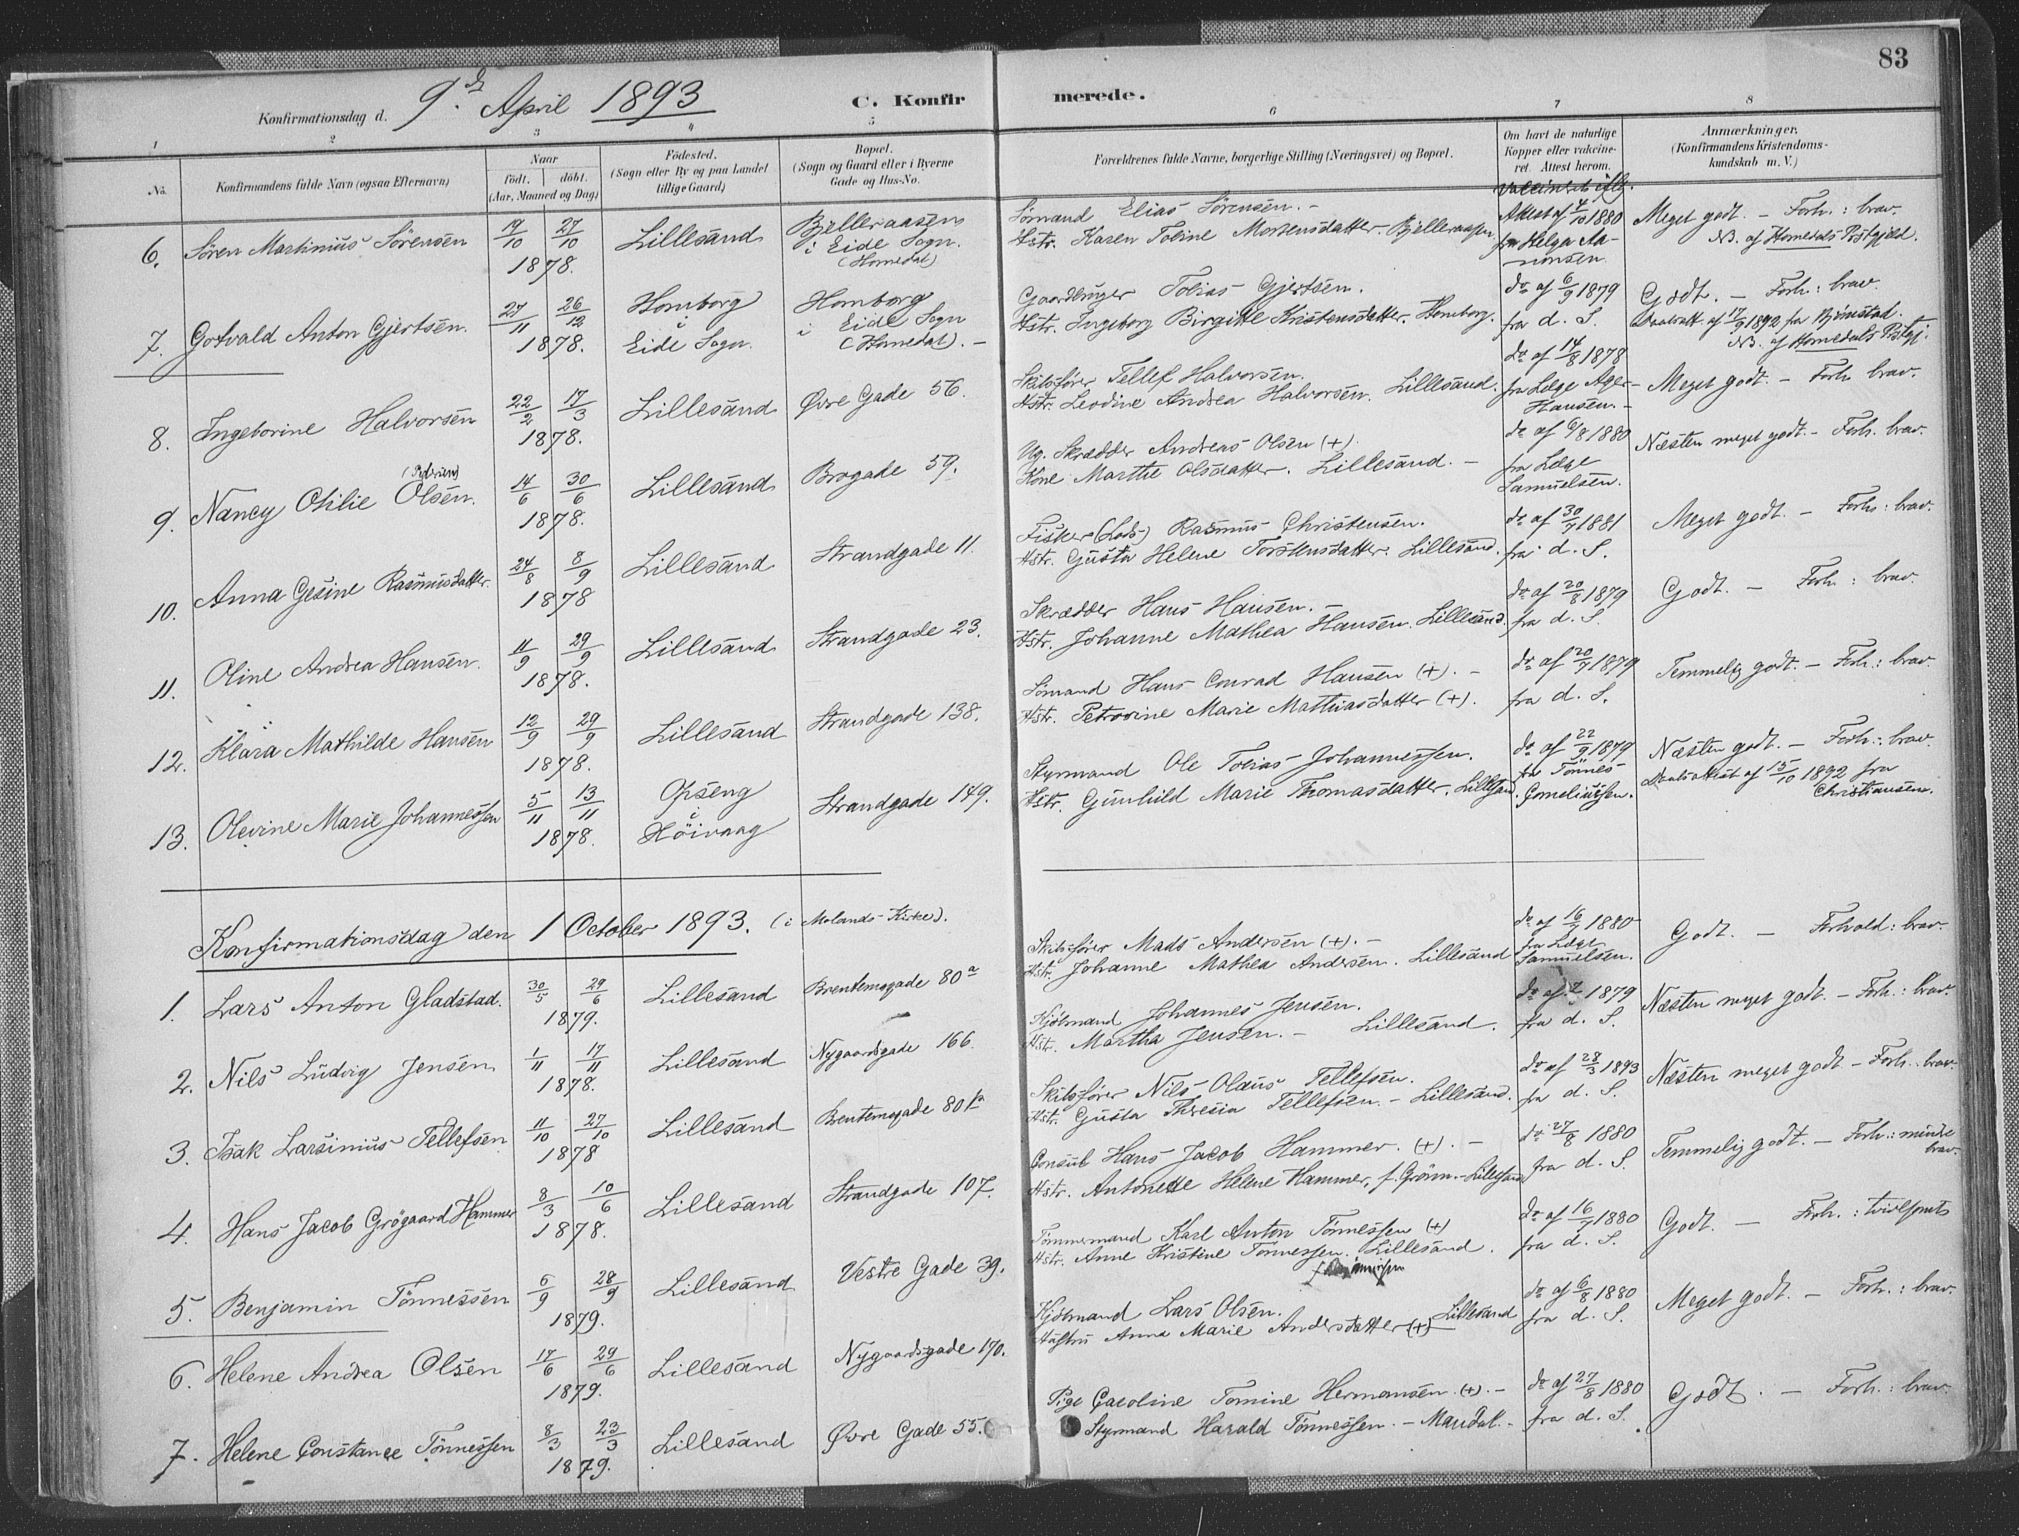 83
Konfirmationsdag d. 9d April 1893
C. Konfirmerede.
1 2 3 4 5 6 7 8
No. Konfirmandens fulde Navn (ogsaa Efternavn)
Naar født. døbt. (Aar, Maaned og Dag)
Fødested. (Sogn eller By og paa Landet tillige Gaard)
Bopæl. (Sogn og Gaard eller i Byerne Gade og Hus-No.
Forældrenes fulde Navne, borgerlige Stilling (Næringsvei) og Bopæl.
Om havt de naturlige Kopper eller vakcineret Attest herom.
Anmærkninger. (Konfirmandens Kristendomskundskab m. V.)
6. Sören Martinius Sörensen 19/10 27/10 1878. Lillesand Bjelleraasen i Eide Sogn. (Homedal)
Sømand Elias Sørensen. - Hstr. Karen Tobine Mortensdatter. Bjelleraasen
Vakcineret iflg. Attest af 4/10 1880 fra Helga Aanonsen
Meget godt. - Forh.: brav. NB. af Homedals Pstgjeld.
7. Gotvald Anton Gjertsen. 27/11 26/12 1878. Homborg i Eide Sogn. Homborg i Eide Sogn (Homedal). -
Gaardbruger Tobias Gjertsen. Hstr. Ingeborg Birgitte Kristensdatter. Homborg.
do af 6/9 1879 fra d. S.
Godt. - Forh: brav. Daabsatt. af 17/9 1892 fra Hjönstad. NB. af Homedals Pstgj.
8. Ingeborine Halvorsen 22/2 17/3 1878. Lillesand Øvre Gade 56.
Skibsfører Tellef Halvorsen. Hstr. Leodine Andrea Halvorsen. Lillesand.
do af 14/8 1878 fra Læge Ager-Hansen. -
Meget godt. - Forh brav.
9. Nancy Otilie Olsen. 14/6 30/6 1878. Lillesand Brogade 59.
Ug. Skrædder Andreas Olsen (+). Kone Marthe Olsdatter. Lillesand. -
do af 6/8 1880 fra Læge Samuelsen.
Næsten meget godt. - Forh. brav.
10. Anna Gesine Rasmusdatter. 24/8 8/9 1878 Lillesand Strandgade 11.
Fisker (Lods) Rasmus Christensen. Hstr. Gusta Helene Torstensdatter. Lillesand.
do af 30/7 1881 fra d. S.
Meget godt. - Forh: brav.
11. Oline Andrea Hansen. 11/9 29/9 1878. Lillesand Strandgade 23.
Skrædder Hans Hansen. - Hstr. Johanne Mathea Hansen. Lillesand.
do af 20/8 1879 fra d. S.
Godt. - Forh: brav.
12. Klara Mathilde Hansen 12/9 29/9 1878. Lillesand Strandgade 138.
Sømand Hans Conrad Hansen (+). - Hstr. Petrovine Marie Mathiasdatter (+).
do af 20/7 1879 fra d. S.
Temmelig godt. - Forh.: brav.
13. Olevine Marie Johannessen 5/11 13/11 1878. Opseng i Höivaag Strandgade 149.
Styrmand Ole Tobias Johannessen. Hstr. Gunhild Marie Thomasdatter. Lillesand.
do af 22/9 1879 fra Tönnes Corneliussen.
Næsten godt. - Forh: brav. Daabsattest af 15/10 1892 fra Christiansen.
Konfirmationsdag den 1 October 1893. (i Molands-Kirke).
1. Lars Anton Gladstad. 30/5 29/6 1879. Lillesand Brentemogade 80a
Skibsfører Mads Andersen (+). - Hstr. Johanne Mathea Andersen. Lillesand
do af 16/7 1880 fra Læge Samuelsen.
Godt. - Forhold: brav.
2. Nils Ludvig Jensen 1/11 17/11 1878. Lillesand Nygaardsgade 166.
Kjölmand Johannes Jensen. Hstr. Martha Jensen. - Lillesand.
do af 1879 fra d. S.
Næsten meget godt. - Forh.: brav.
3. Isak Larsinius Tellefsen 11/10 27/10 1878 Lillesand Brentemogade 80b
Skibsfører Nils Olaus Tellefsen. Hstr. Gusta Theresia Tellefsen. - Lillesand.
do af 28/3 1893 fra d. S.
Næsten meget godt - Forh.: brav.
4. Hans Jacob Grögaard Hammer 8/3 10/6 1878. Lillesand Strandgade 107.
Consul Hans Jacob Hammer. (+). - Hstr. Antonette Helene Hammer, f. Grönn. - Lillesand
do 27/8 1880 fra d. S.
Temmelig godt. - Forh.: mindre brav.
5. Benjamin Tönnessen 6/9 28/9 1879. Lillesand Vestre Gade 39.
Tömmermand Karl Anton Tönnessen (+) Hstr. Anne Kristine Tönnessen. Lillesand.
do af 16/7 1880 fra d. S.
Godt. - Forh.: tvivlsomt
6. Helene Andrea Olsen 17/6 29/6 1879. Lillesand Nygaardsgade 170.
Kjölmand Lars Olsen. Hustru Anna Marie Andersdatter (+) Lillesand
do af 6/8 1880 fra d. S.
Meget godt. - Forh.: brav.
7. Helene Constance Tönnessen 8/3 23/3 1879. Lillesand Øvre Gade 55.
Pige Caroline Tomine Hermansen. (+). - Styrmand Harald Tönnessen. - Mandal. -
do af 27/8 1880 fra d. S.
Godt. - Forh.: brav.